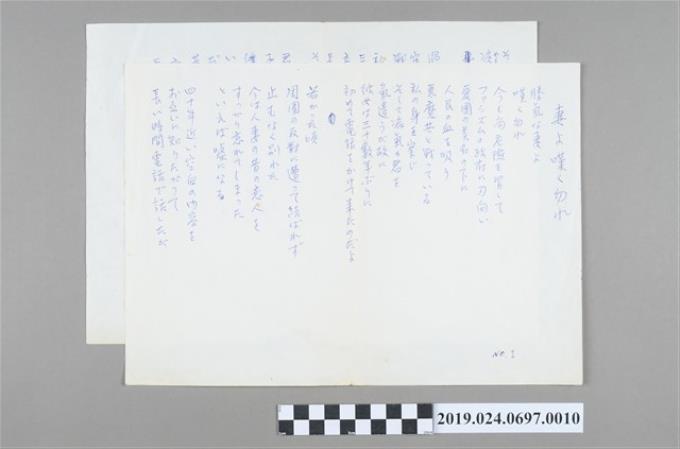 妻よ嘆く勿れ
勝気な妻よ
嘆く勿れ
今も尚危険を冒して
ファシズムの政府に刃向い
愛国の美名の下に
人民の血を吸う
悪魔共と戦っている
私の身を案じ
そして病気の君を
気遣うが故に
彼女は三十数年ぶりに
初めて電話をかけて来たのだよ
若かった頃
周囲の反対に遭って結ばれず
止むなく別れた
今は人妻の昔の恋人を
すっかり忘れてしまった
といえば嘘になる
四十年近い空白の内容を
お互いに知りたがって
長い時間電話で話したが
NO. 1
2019.024.0697.0010